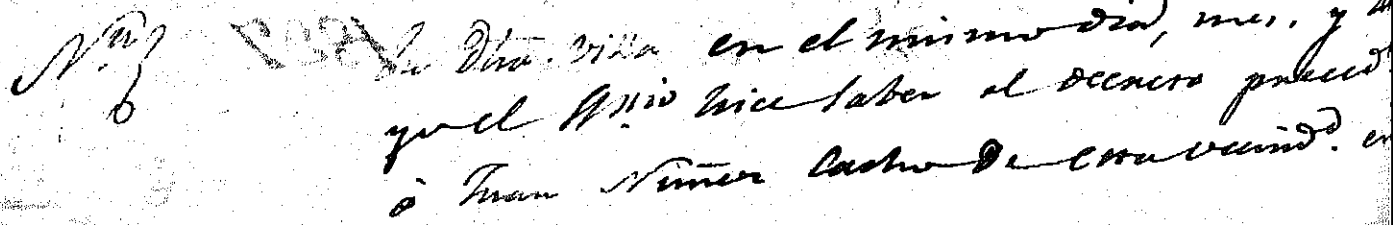 Nn
En dha. villa en el mismo dia, mes. y
yo el Essno hice saber el decreto preced
à Juan Nuñez Cacho de esta vecindd. en